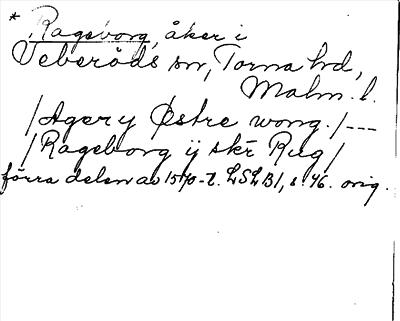 * Rageborg, åker i
Veberöds sn, Torna hd,
Malm. l.
/Ager y Østre wong./---
/Rageborg ij skr Rug/
förra delen av 1570-t. LSLB1, s. 46. orig.